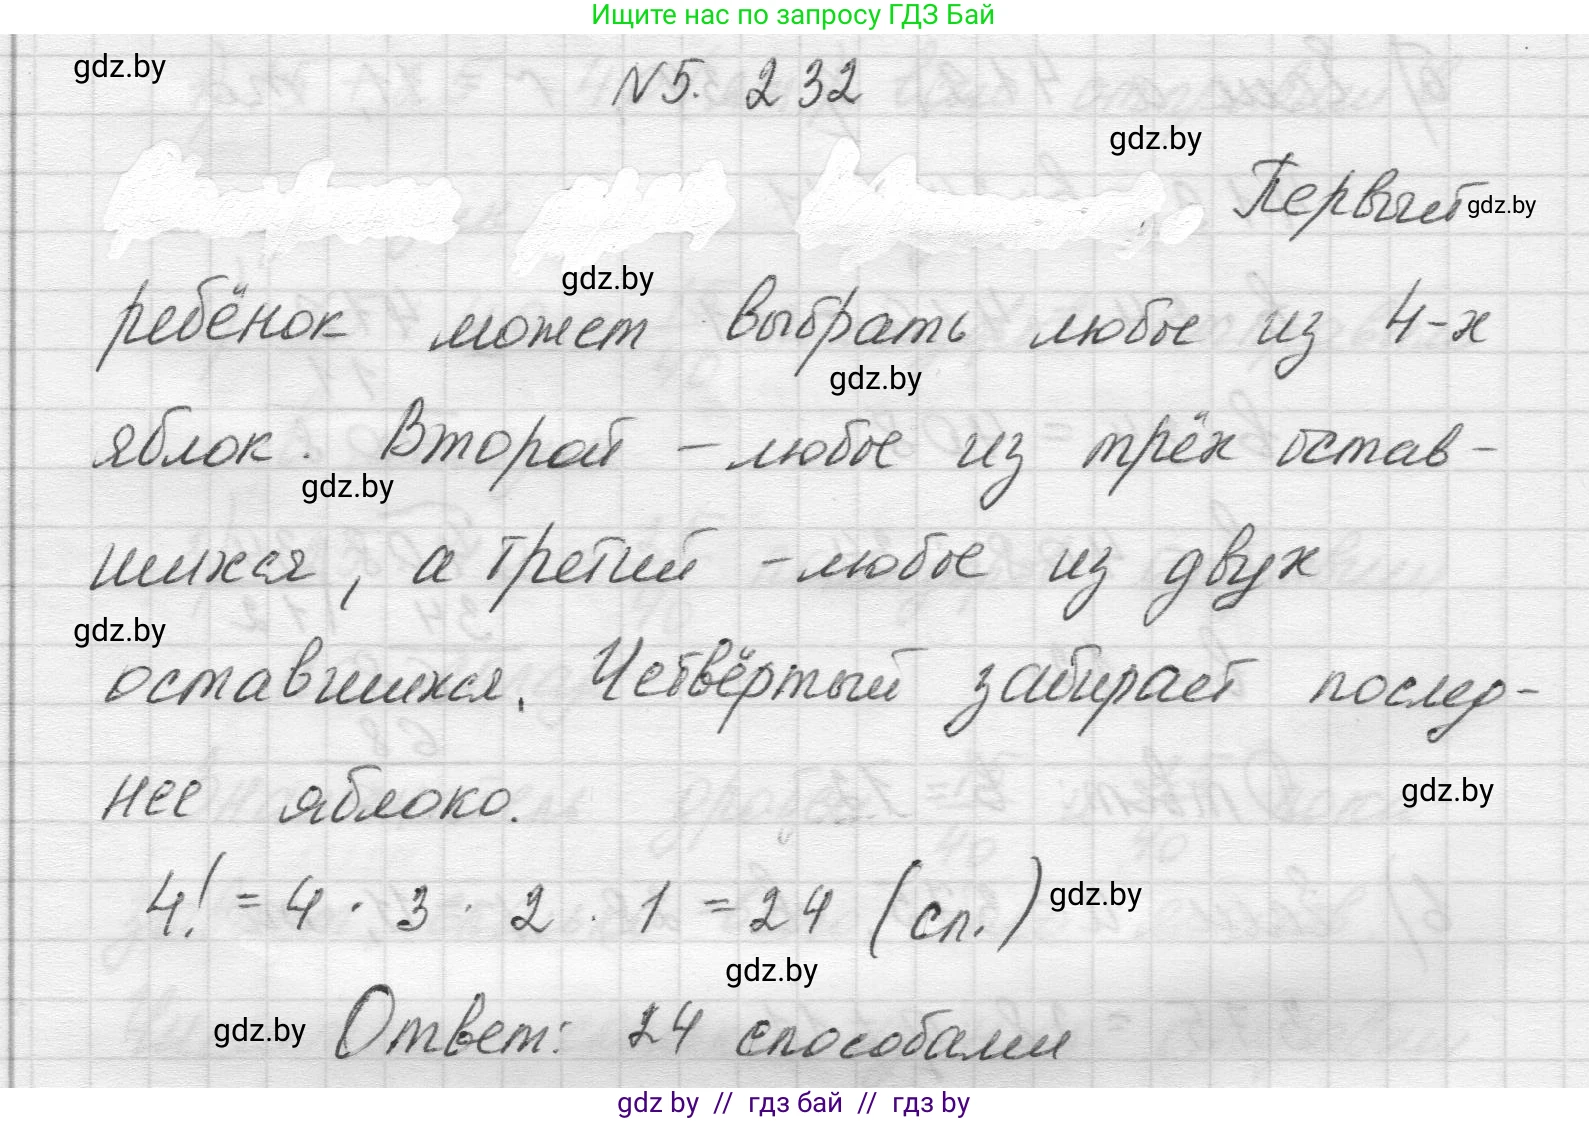 Ищите нас по запросу ГДЗ Бай
gdz.by
N5. 232
gdz.by
Первый gdz.by
gdz.by
ребёнок может выбрать любое из 4-х
gdz.by
яблок. Второй – любое из трёх остав-
gdz.by
шихся, а третий – любое из двух
gdz.by
оставшихся. Четвёртый забирает послед-
нее яблоко.
gdz.by
4! = 4 · 3 · 2 · 1 = 24 (сп.) gdz.by
gdz.by
gdz.by Ответ: 24 способами
gdz by // гдз бай // гдз by